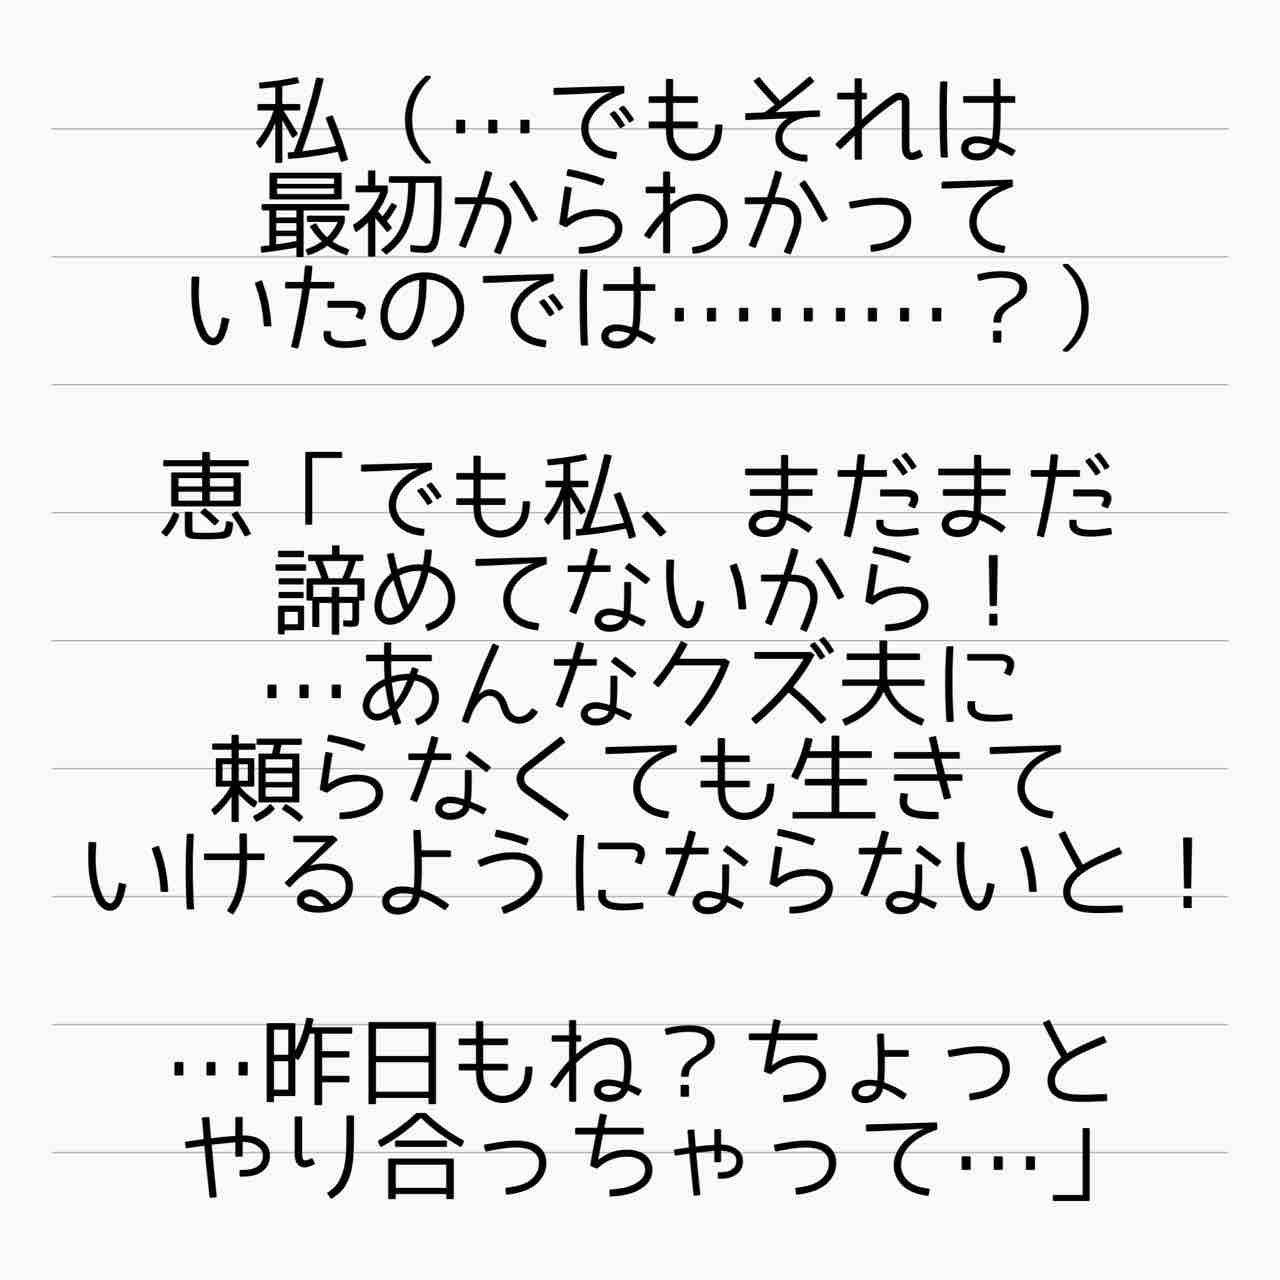 私（…でもそれは
最初からわかって
いたのでは………？）
恵「でも私、まだまだ
諦めてないから！
…あんなクズ夫に
頼らなくても生きて
いけるようにならないと！
…昨日もね？ちょっと
やり合っちゃって…」